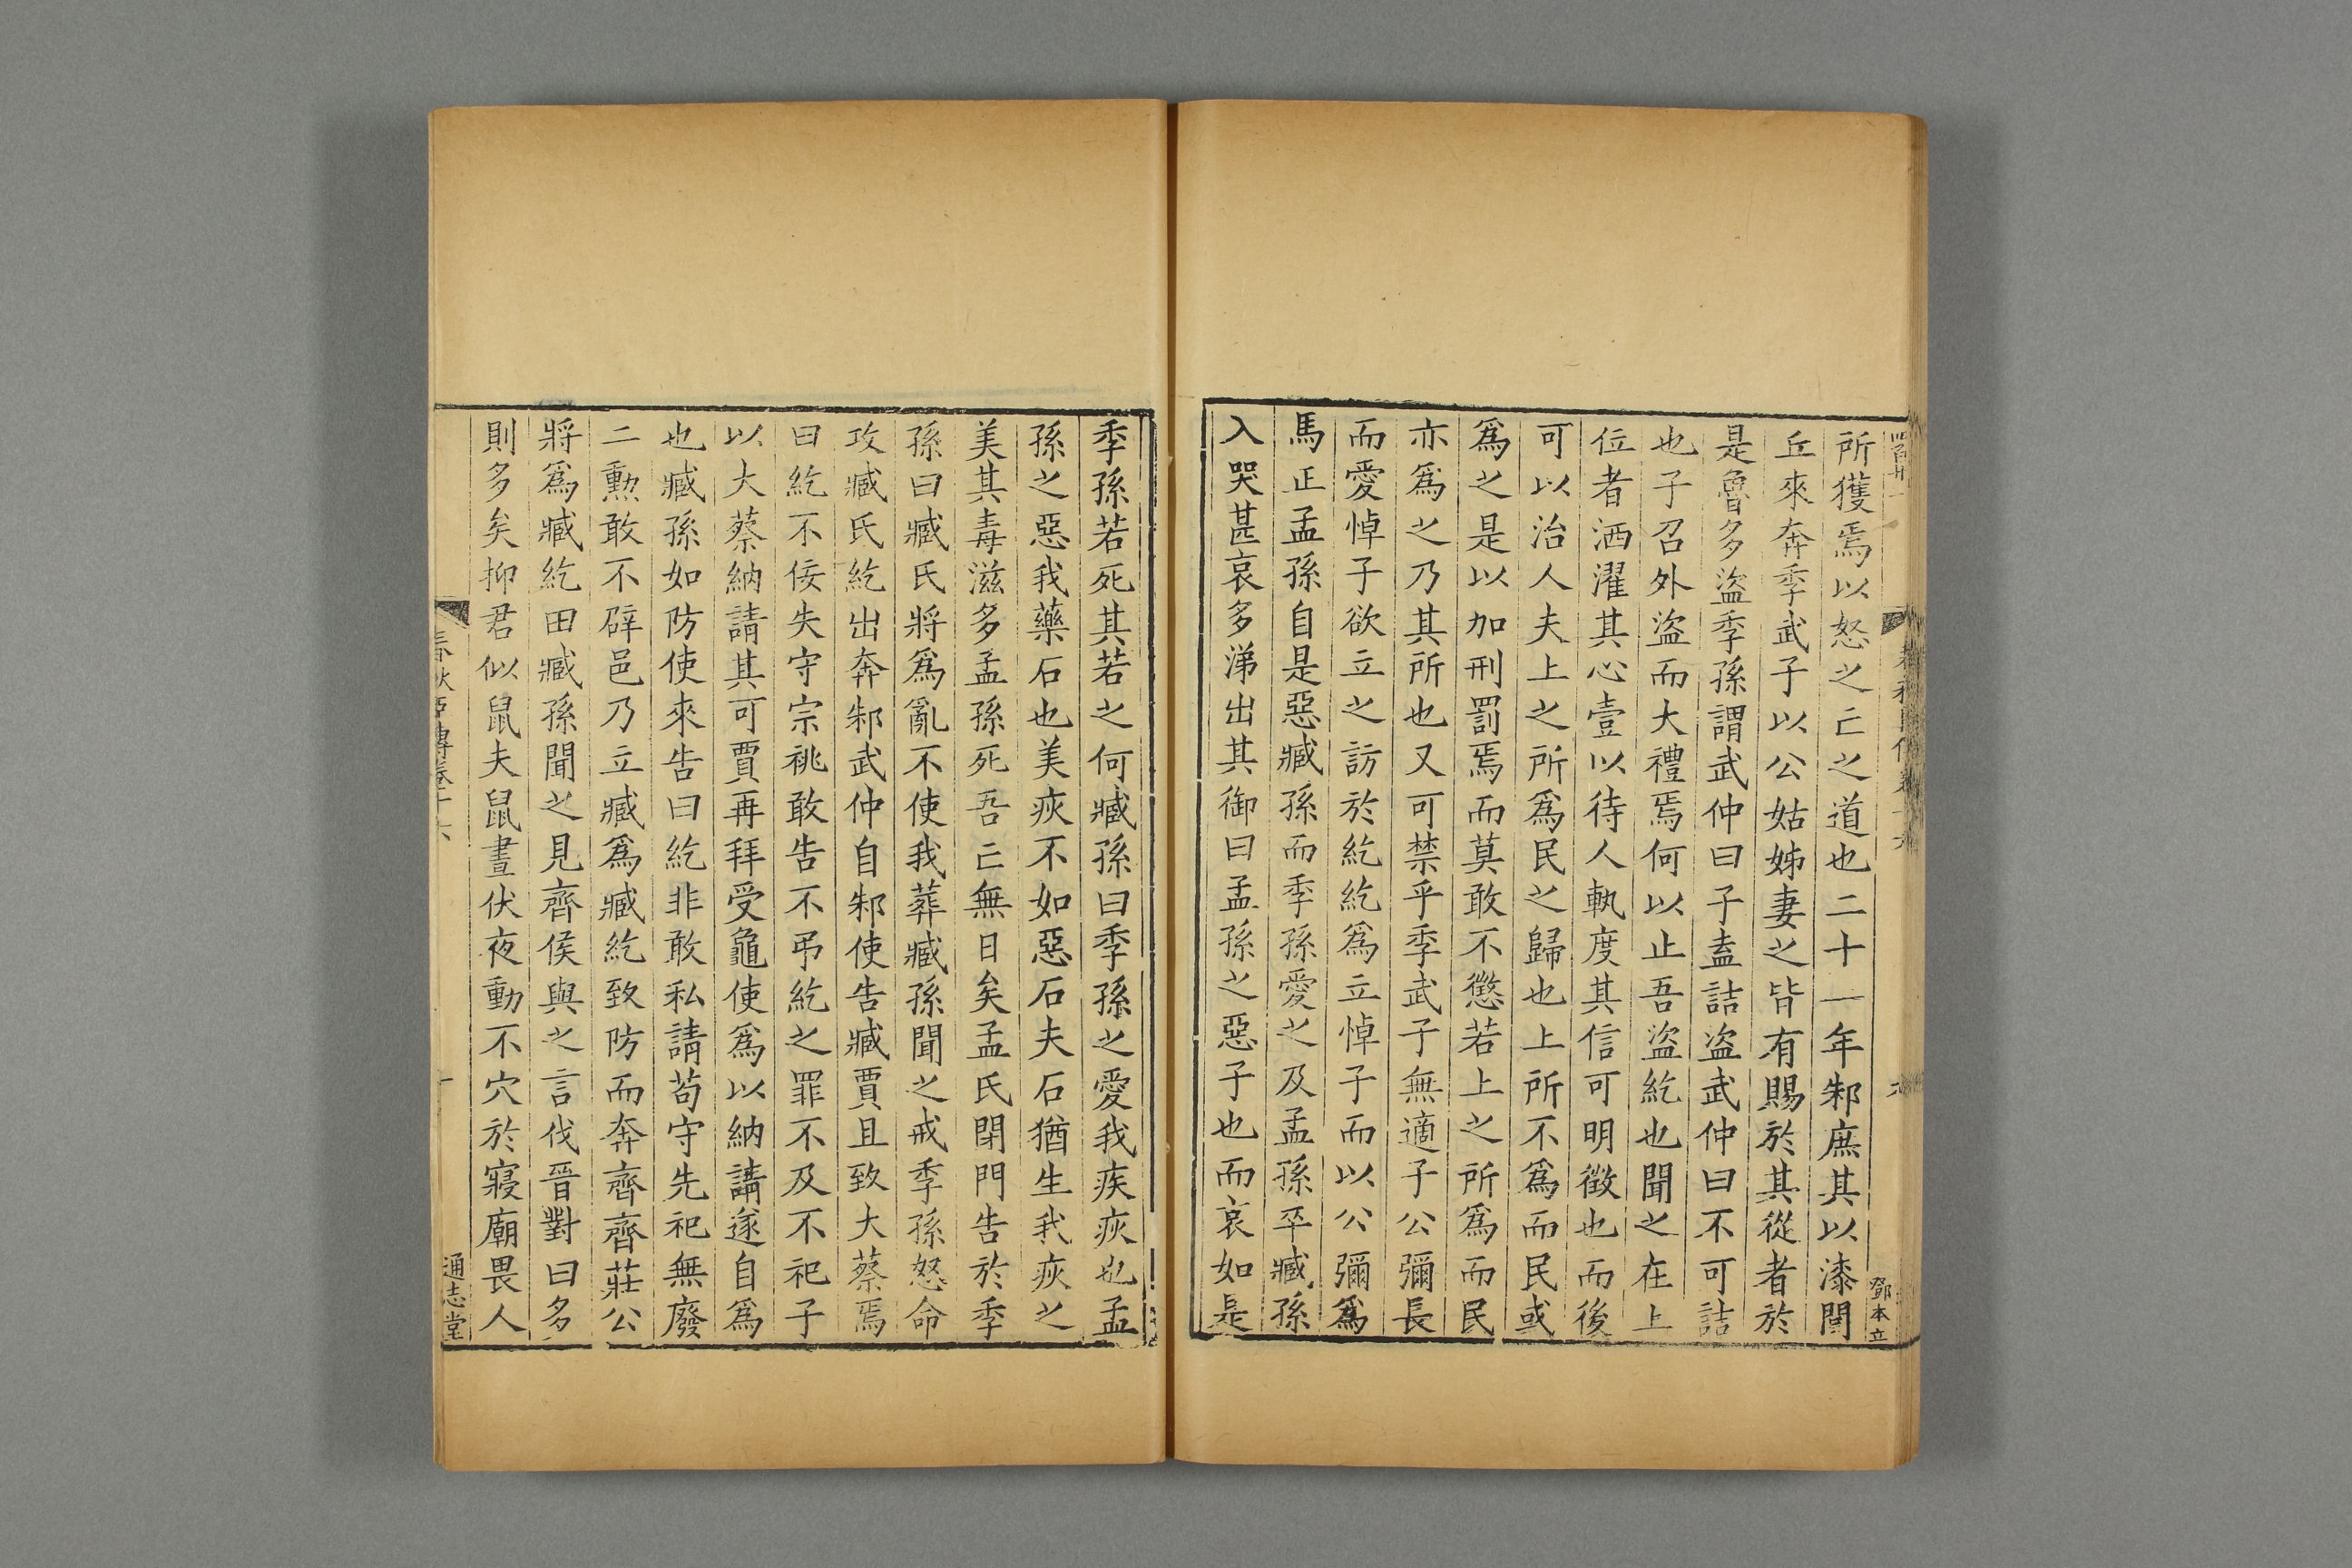 所獲焉以怒之亡之道也二十一年邾庶其以漆閭
丘來奔季武子以公姑姊妻之皆有賜於其從者於
是魯多盜季孫謂武仲曰子盍詰盜武仲曰不可詰
也子召外盜而大禮焉何以止吾盜紇也聞之在上
位者洒濯其心壹以待人軌度其信可明徵也而後
可以治人夫上之所爲民之歸也上所不爲而民或
爲之是以加刑罰焉而莫敢不懲若上之所爲而民
亦爲之乃其所也又可禁乎季武子無適子公彌長
而愛悼子欲立之訪於紇紇爲立悼子而以公彌爲
馬正孟孫自是惡臧孫而季孫愛之及孟孫卒臧孫
入哭甚哀多涕出其御曰孟孫之惡子也而哀如是
鄧本立
季孫若死其若之何臧孫曰季孫之愛我疾疢也孟
孫之惡我藥石也美疢不如惡石夫石猶生我疢之
美其毒滋多孟孫死吾亡無日矣孟氏閉門告於季
孫曰臧氏將爲亂不使我葬臧孫聞之戒季孫怒命
攻臧氏紇出奔邾武仲自邾使告臧賈且致大蔡焉
曰紇不佞失守宗祧敢告不弔紇之罪不及不祀子
以大蔡納請其可賈再拜受龜使爲以納請遂自爲
也臧孫如防使來告曰紇非敢私請苟守先祀無廢
二勲敢不辟邑乃立臧爲臧紇致防而奔齊齊莊公
將爲臧紇田臧孫聞之見齊侯與之言伐晉對曰多
則多矣抑君似鼠夫鼠晝伏夜動不穴於寢廟畏人
春秋臣傳卷十六
通志堂